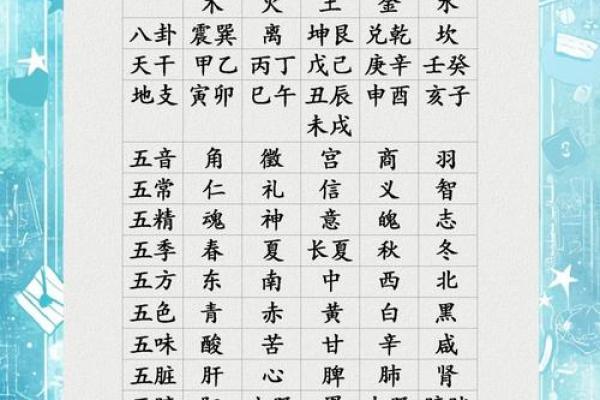 木 火 土 金 水
八卦 震巽 离 坤艮 兑乾 坎
天干 甲乙 丙丁 戊己 庚辛 壬癸
地支 寅卯 巳午 丑辰 申酉 亥子
未戌
五音 角 徵 宫 商 羽
五常 仁 礼 信 义 智
五精 魂 神 意 魄 志
五季 春 夏 长夏 秋 冬
五方 东 南 中 西 北
五色 青 赤 黄 白 黑
五味 酸 苦 甘 辛 咸
五脏 肝 心 脾 肺 肾